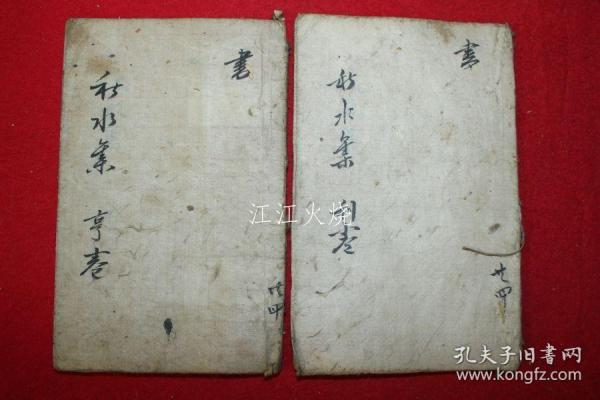 書
秋水集 亨卷
廿四
書
秋水集 利卷
廿四
江江火烧
孔夫子旧书网
www.kongfz.com